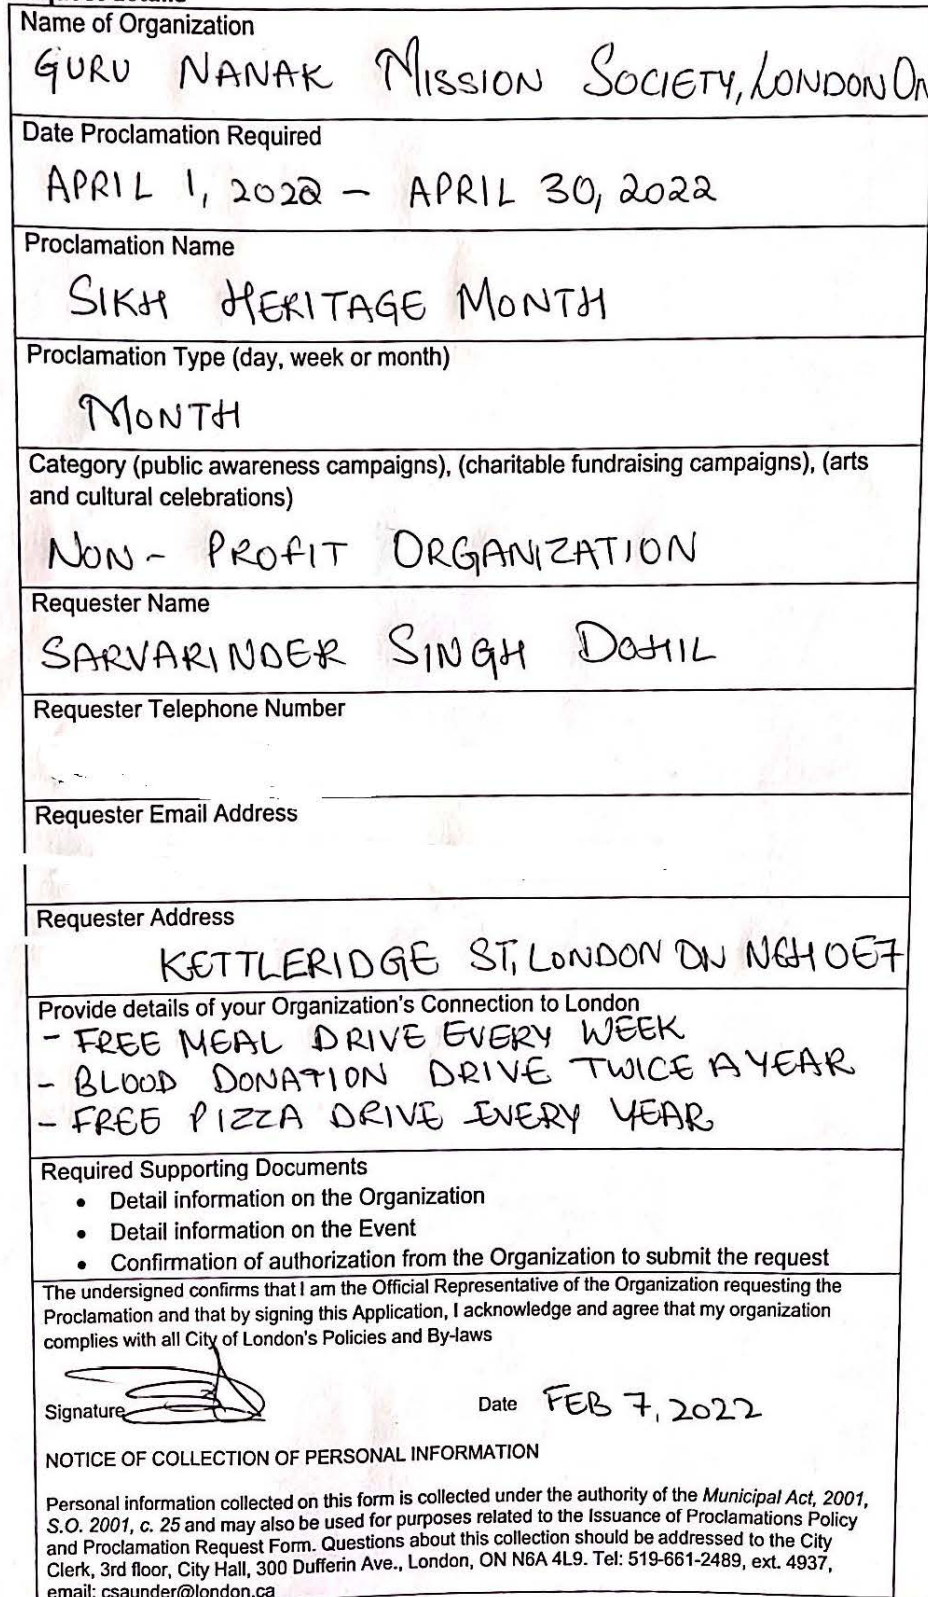 Name of Organization
GURU NANAK MISSION SOCIETY, LONDON ON
Date Proclamation Required
APRIL 1, 2022 - APRIL 30, 2022
Proclamation Name
SIKH HERITAGE MONTH
Proclamation Type (day, week or month)
MONTH
Category (public awareness campaigns), (charitable fundraising campaigns), (arts
and cultural celebrations)
NON - PROFIT ORGANIZATION
Requester Name
SARVARINDER SINGH DOHIL
Requester Telephone Number
Requester Email Address
Requester Address
KETTLERIDGE ST, LONDON ON N6H 0E7
Provide details of your Organization's Connection to London
- FREE MEAL DRIVE EVERY WEEK
- BLOOD DONATION DRIVE TWICE A YEAR
- FREE PIZZA DRIVE EVERY YEAR
Required Supporting Documents
• Detail information on the Organization
• Detail information on the Event
• Confirmation of authorization from the Organization to submit the request
The undersigned confirms that I am the Official Representative of the Organization requesting the
Proclamation and that by signing this Application, I acknowledge and agree that my organization
complies with all City of London's Policies and By-laws
Signature
Date FEB 7, 2022
NOTICE OF COLLECTION OF PERSONAL INFORMATION
Personal information collected on this form is collected under the authority of the Municipal Act, 2001,
S.O. 2001, c. 25 and may also be used for purposes related to the Issuance of Proclamations Policy
and Proclamation Request Form. Questions about this collection should be addressed to the City
Clerk, 3rd floor, City Hall, 300 Dufferin Ave., London, ON N6A 4L9. Tel: 519-661-2489, ext. 4937,
email: csaunder@london.ca